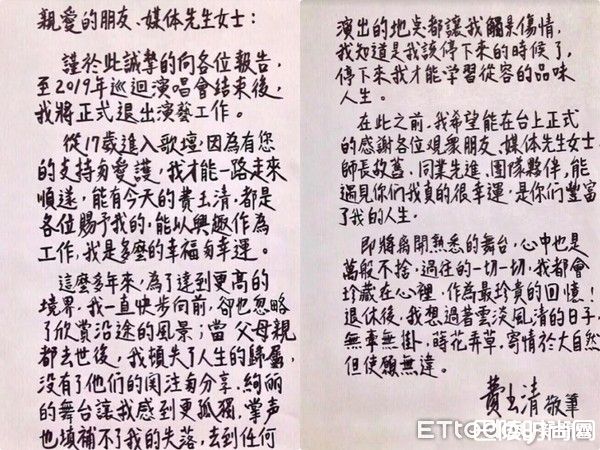 親愛的朋友、媒体先生女士：
謹於此誠摯的向各位報告，
至2019年巡迴演唱會結束後，
我將正式退出演藝工作。
從17歲進入歌壇，因為有您
的支持与愛護，我才能一路走來
順遂，能有今天的費玉清，都是
各位賜予我的，能以興趣作為
工作，我是多麼的幸福与幸運。
這麼多年來，為了達到更高的
境界，我一直快步向前，卻也忽略
了欣賞沿途的風景；當父母親
都去世後，我頓失了人生的歸屬，
沒有了他們的関注与分享，絢麗
的舞台讓我感到更孤獨，掌声
也填補不了我的失落，去到任何
演出的地点都讓我觸景傷情，
我知道是我該停下來的時候了，
停下來我才能學習從容的品味
人生。
在此之前，我希望能在台上正式
的感謝各位觀衆朋友、媒体先生女士、
師長故舊、同業先進、團隊夥伴，能
遇見你們我真的很幸運，是你們豐富
了我的人生。
即將离開熟悉的舞台，心中也是
萬般不捨，過往的一切一切，我都會
珍藏在心裡，作為最珍貴的回憶！
退休後，我想過著雲淡風清的日子，
無牽無掛，蒔花弄草，寄情於大自然
但使願無違。
費玉清 敬筆
ETtoday